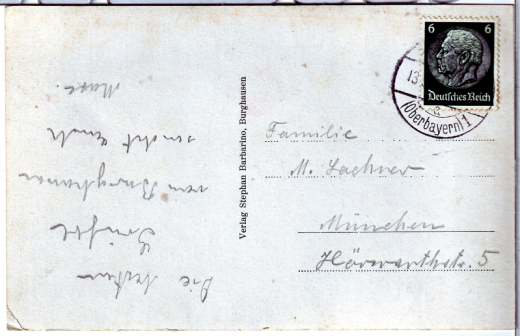 Die besten
Grüße
von Burghausen
sendet Euch
Marx.
Verlag Stephan Barbarino, Burghausen
6 6
Deutsches Reich
13
(Oberbayern) 1
a
Familie
M. Lachner
München
Hörwarthstr. 5